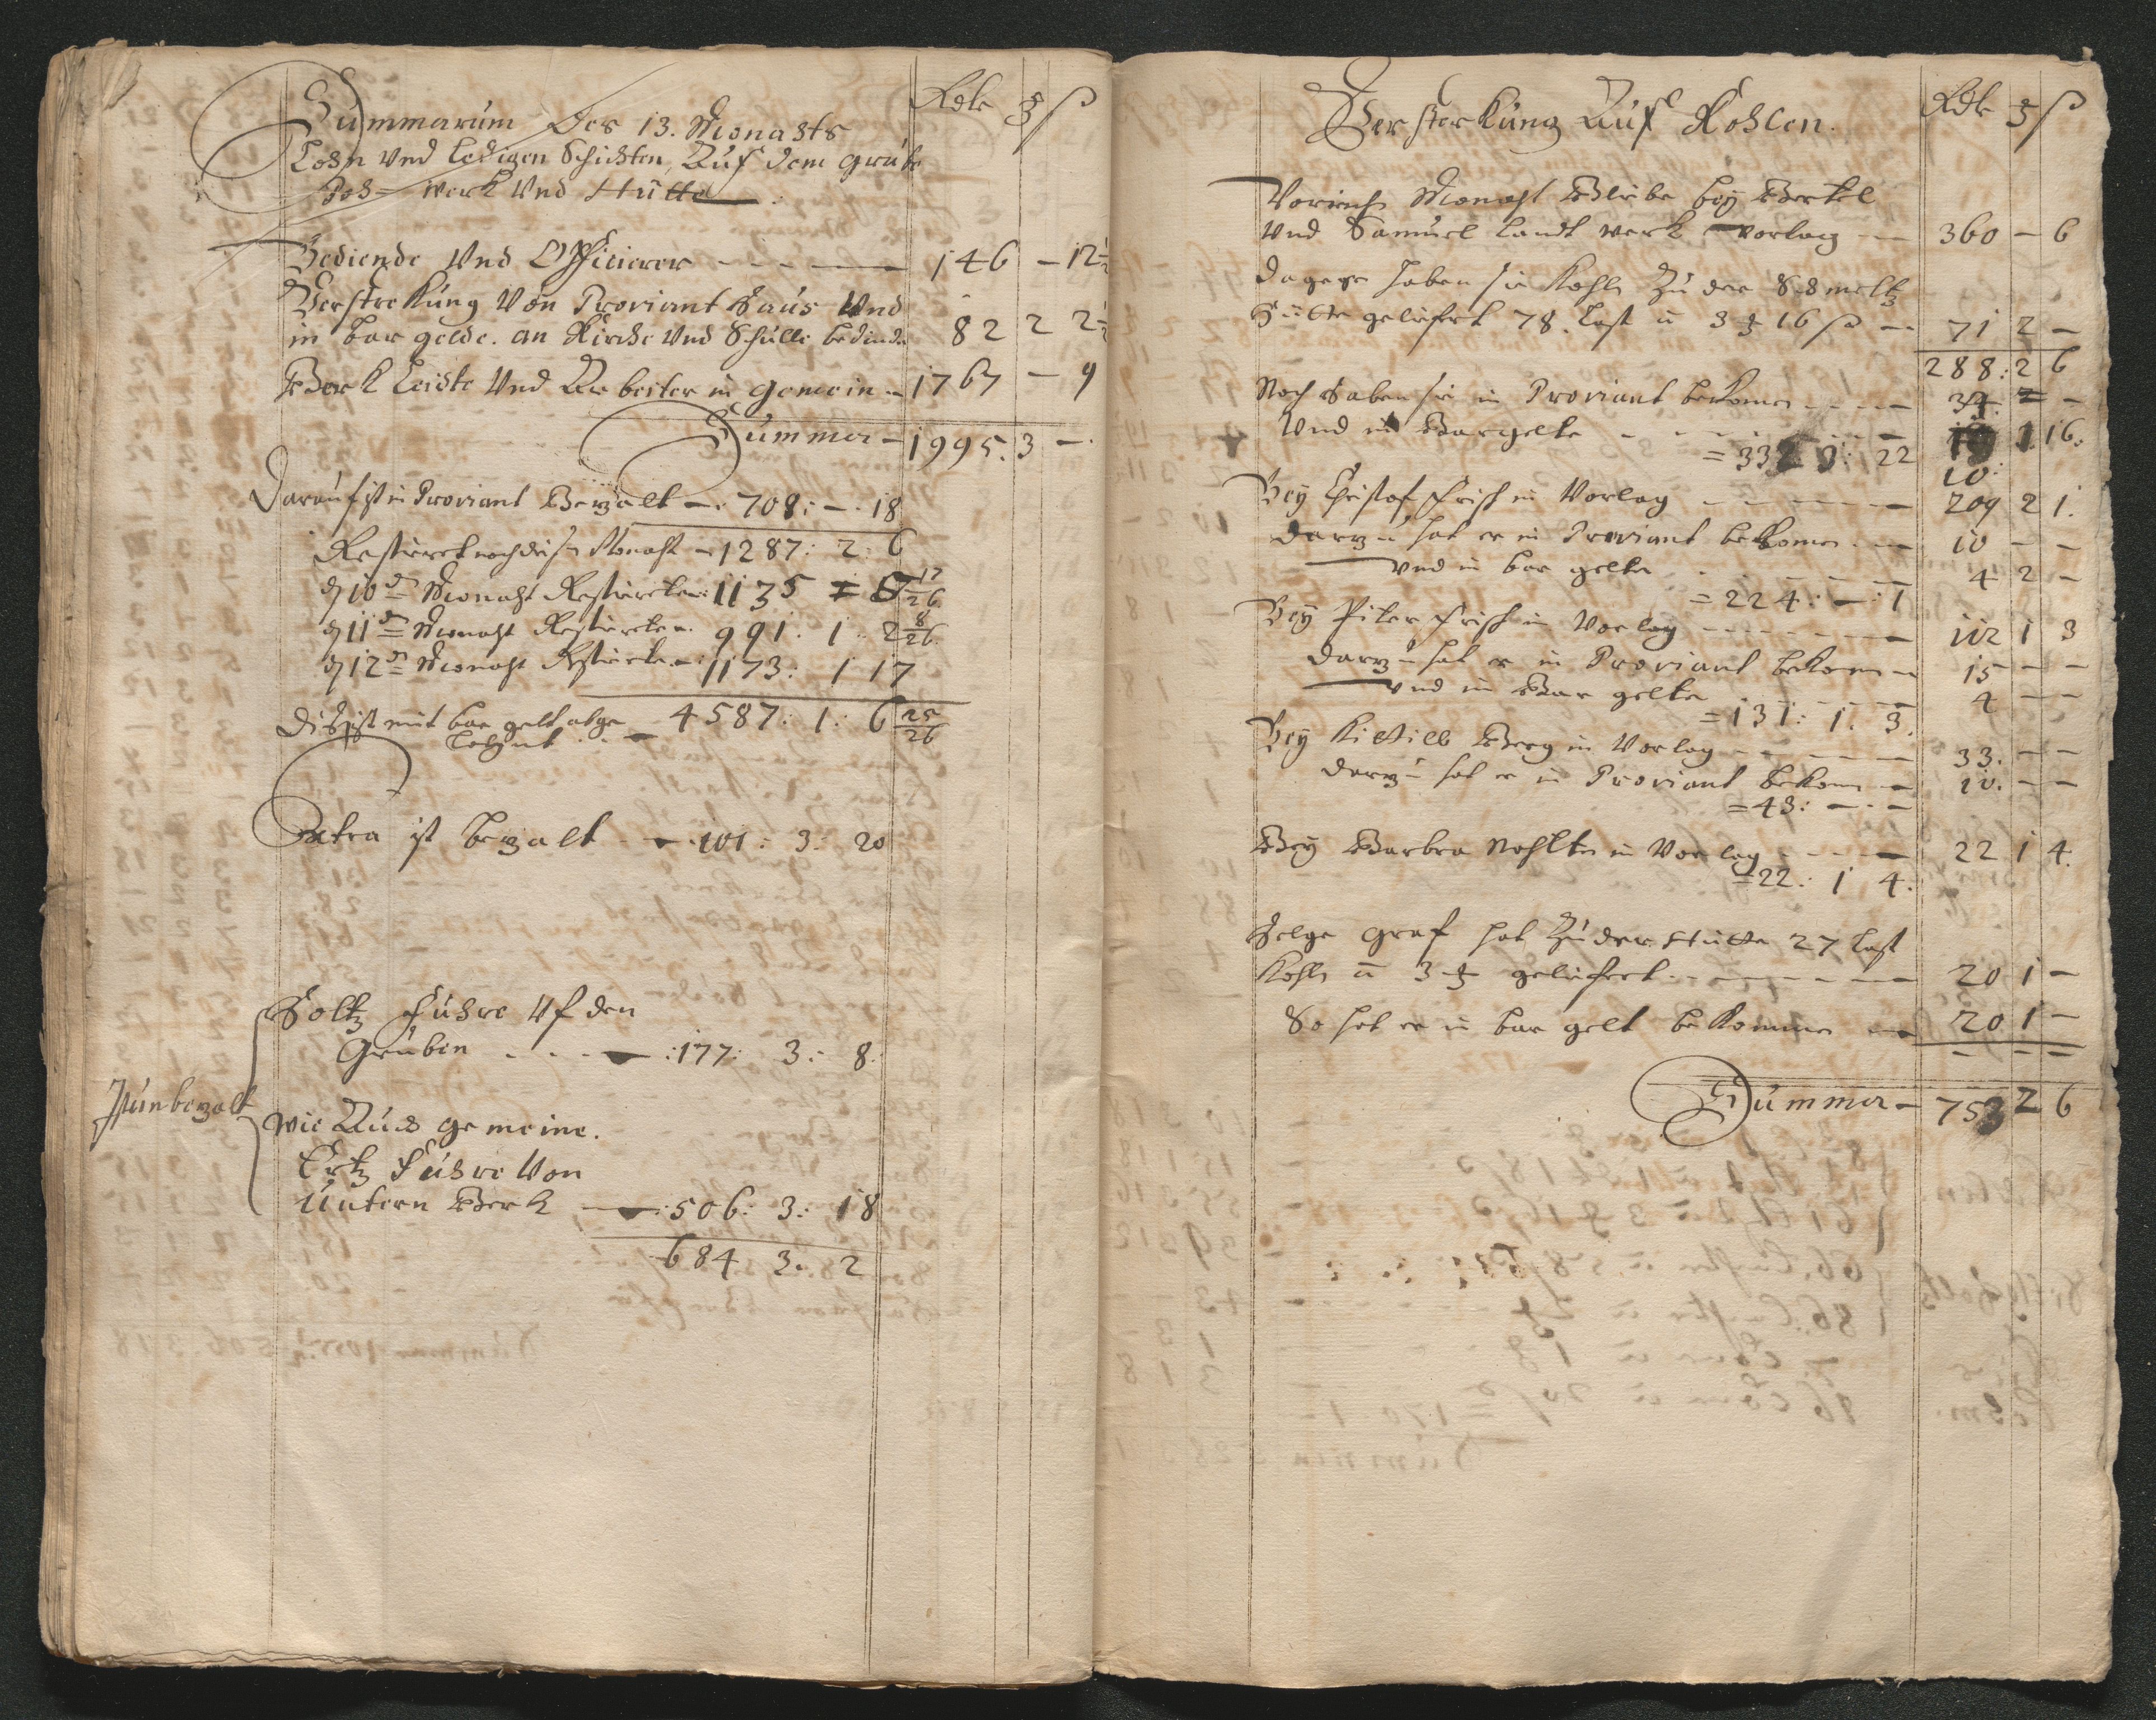 Rdlr ℥ ß
Summarum Des 13. Monahts
Lohn und ledigen Schichten, Auf dem grube
Poch= werk und Hütte
Bediende Und Officierer - - - 146 — 12½
Verstrekung Von Proviant Haus Und
in bar gelde. an Kirche und Schulle bediende 82 2 2½
Berk Leüte Und Arbeiter in gemein - 1767 — 9
Summa - 1995. 3 —.
Darauf ist in Proviant Bezalt -. 708: -. 18
Restieret noch diese Monaht - 1287: 2: 6
10 Monaht Restierete 1135 17/26
11 Monaht Restierete. 991. 1. 2 8/26
12 Monaht Restierete. 1173: 1 17
Dis ist mit bar gelt abge - 4587: 1: 6 25/26
lehnt
Extra ist bezalt - 101: 3: 20
Holtz Fuhre Uf den
Gruben . . . - :177: 3: 8:
unbezalt
wie Auch gemeine.
Ertz Fuhre Von
Untern Berk - :506: 3: 18
684 3. 2
Rdlr ℥ ß
Versterkung Auf Kohlen.
Vorich Monaht Blibe bey Bertel
Und Samuel Landt werk vorlag - 360 — 6
dagege haben sie Kohle Zu der Schmeltz
Hütte geliefert 78. Last a 3 16 ß - 71 2 —
288: 2 6
Noch haben sie in Proviant bekomen - - - 34. —
Und in Bargelte - - - 10 1 16.
10:
Bey Christof Frisch in Vorlag - - - 209 2 1.
Darzu hat er in Proviant bekomen - 10 — —
und in bar gelte - - - 4 2 —
= 224: —: 1
Bey Piter Frisch in Vorlag - - - 112 1 3
Darzu hat er in Proviant bekomen - 15 — —
und in Bar gelte - - - 4 — —
= 131: 1. 3.
Bey Kittill Berg in Vorlag - - - 33. — —
Darzu hat er in Proviant bekomen - 10. — —
= 43: —. —
Bey Barbra Nohlte in Vorlag - - - 22 1 4.
= 22: 1 4:
Helge Graf hat Zu der Hütte 27 last
Kohle a 3 geliefert - - - 20 1 —
So hat er in bar gelt bekommen - 20 1 —
— — —
Summa - 753 2 6